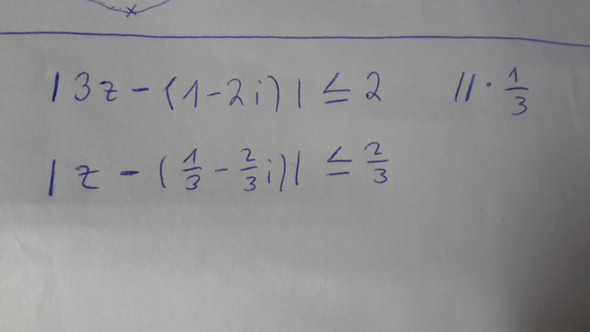 |3z - (1-2i)| ≤ 2 || · 1/3
|z - (1/3 - 2/3 i)| ≤ 2/3